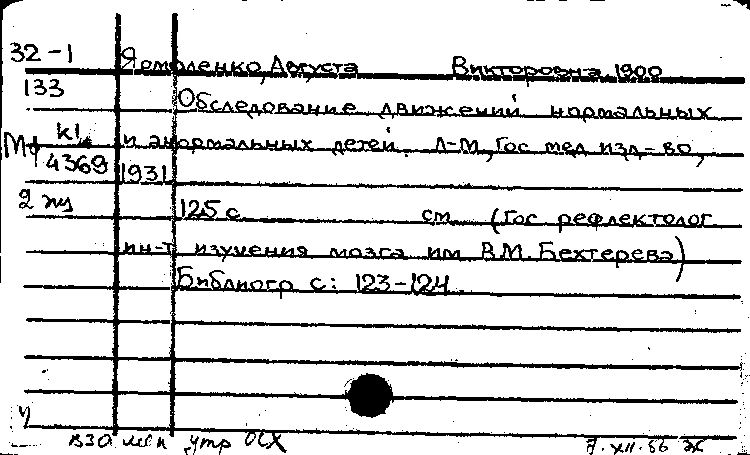 32-1 Ярмоленко, Августа Викторовна, 1900
133 Обследование движений нормальных
К1 и анормальных детей. Л-М, Гос мед изд-во,
4369 1931
2 125 с см (Гос рефлектолог
ин-т изучения мозга им В.М. Бехтерева)
Библиогр с: 123-124
7.XII.66